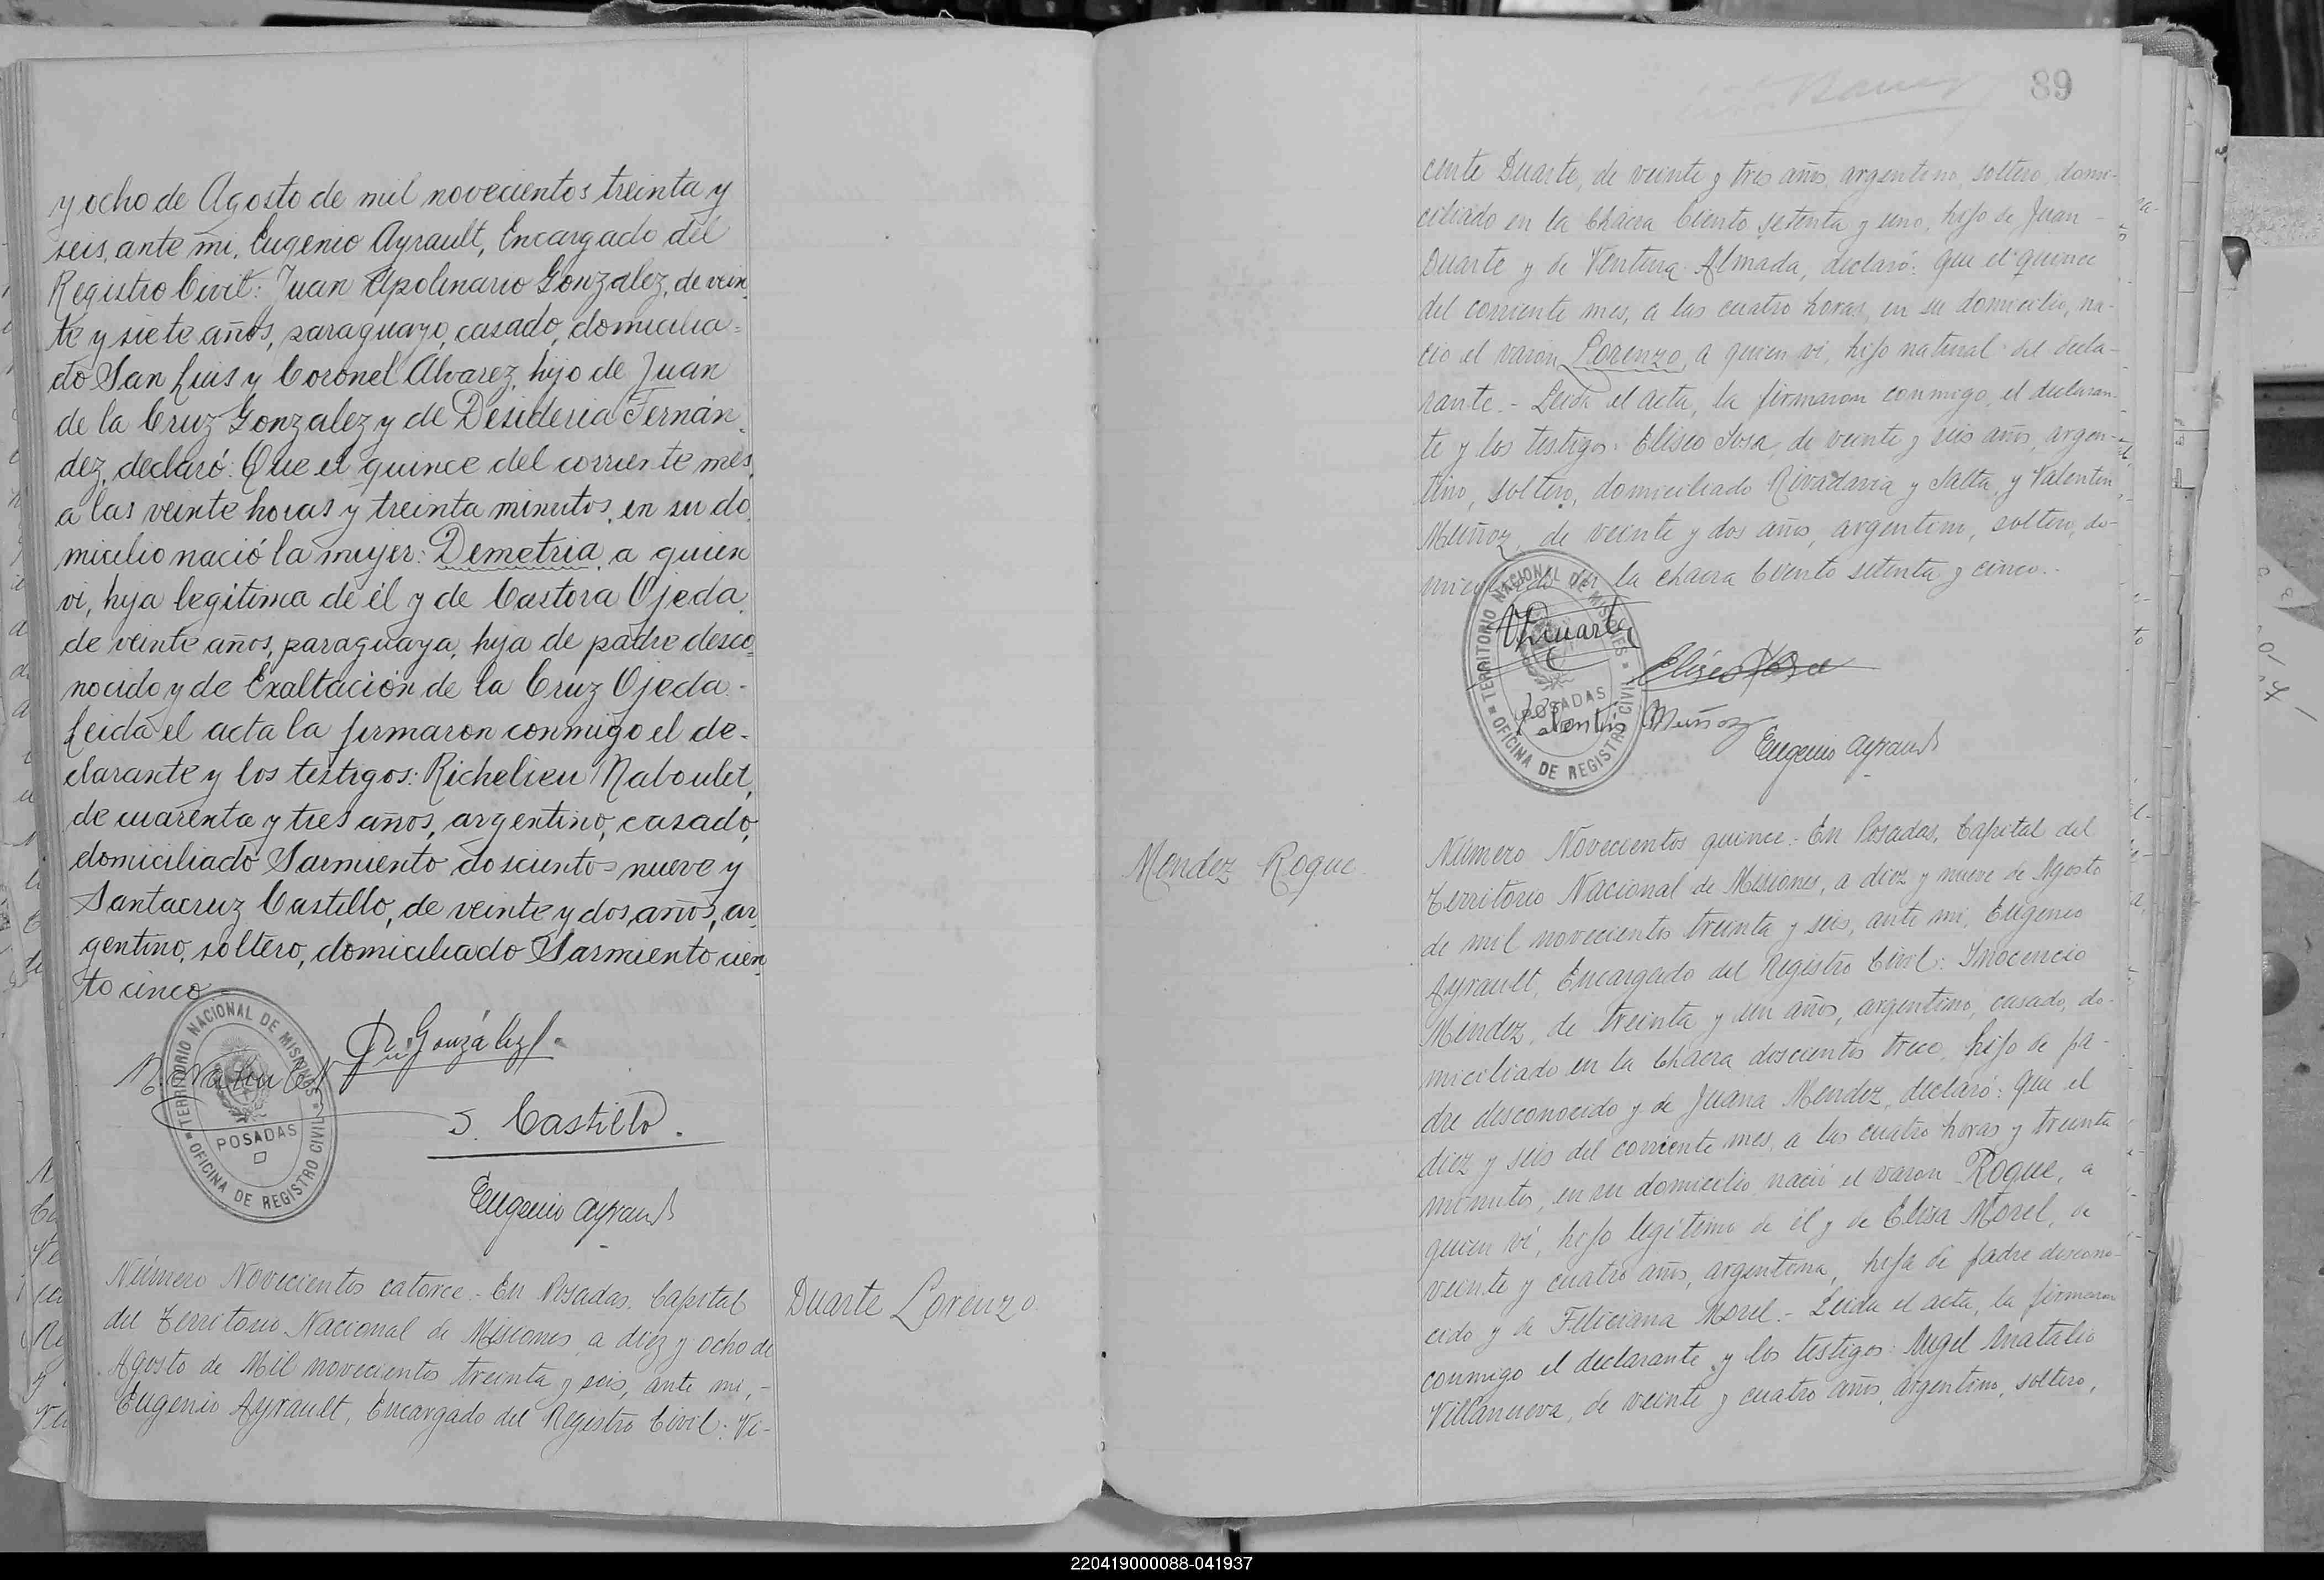 y ocho de Agosto de mil novecientos treinta y
seis, ante mi, Eugenio Ayrault, Encargado del
Registro Civil: Juan Apolinario Gonzalez, de vein-
te y siete años, paraguayo, casado, domicilia=
do San Luis y Coronel Alvarez, hijo de Juan
de la Cruz Gonzalez y de Desideria Fernán-
dez, declaró: Que el quince del corriente mes,
a las veinte horas y treinta minutos, en su do
micilio nació la mujer: Demetria, a quien
vi, hija legitima de él y de Castora Ojeda,
de veinte años, paraguaya, hija de padre desco=
nocido y de Exaltación de la Cruz Ojeda.-
Leida el acta la firmaron conmigo el de-
clarante y los testigos: Richelieu Naboulet,
de cuarenta y tres años, argentino, casado,
domiciliado Sarmiento doscientos nueve y
Santacruz Castillo, de veinte y dos años, ar-
gentino, soltero, domiciliado Sarmiento cien
to cinco.-
González
S. Castillo.
TERRITORIO NACIONAL DE MISIONES
POSADAS
OFICINA DE REGISTRO CIVIL
Eugenio Ayrault
Número Novecientos catorce.- En Posadas, Capital
del Territorio Nacional de Misiones, a diez y ocho de
Agosto de Mil novecientos treinta y seis, ante mi,-
Eugenio Ayrault, Encargado del Registro Civil: Vi-
Duarte Lorenzo.
89
cente Duarte, de veinte y tres años, argentino, soltero, domi-
ciliado en la Chacra Ciento setenta y uno, hijo de Juan
Duarte y de Ventura Almada, declaró: que el quince
del corriente mes, a las cuatro horas, en su domicilio, na-
ció el varon Lorenzo, a quien vi, hijo natural del decla-
rante.- Leida el acta, la firmaron conmigo, el declaran-
te y los testigos: Eliseo Sosa, de veinte y seis años, argen-
tino, soltero, domiciliado Rivadavia y Salta, y Valentin
Muñoz, de veinte y dos años, argentino, soltero, do-
miciliado en la chacra Ciento setenta y cinco.-
V Duarte
Eliseo Sosa
Valentin Muñoz
TERRITORIO NACIONAL DE MISIONES
POSADAS
OFICINA DE REGISTRO CIVIL
Eugenio Ayrault
Mendez Roque.
Número Novecientos quince.- En Posadas, Capital del
Territorio Nacional de Misiones, a diez y nueve de Agosto
de mil novecientos treinta y seis, ante mi, Eugenio
Ayrault, Encargado del Registro Civil: Inocencio
Méndez, de treinta y un años, argentino, casado, do-
miciliado en la Chacra doscientos trece, hijo de pa-
dre desconocido y de Juana Mendez, declaró: que el
diez y seis del corriente mes, a las cuatro horas y treinta
minutos, en su domicilio nació el varon Roque, a
quien vi, hijo legitimo de él y de Elisa Morel, de
veinte y cuatro años, argentina, hija de padre descono-
cido y de Feliciana Morel.- Leida el acta, la firmaron
conmigo el declarante y los testigos: Angel Anatalio
Villanueva, de veinte y cuatro años, argentino, soltero,
220419000088-041937